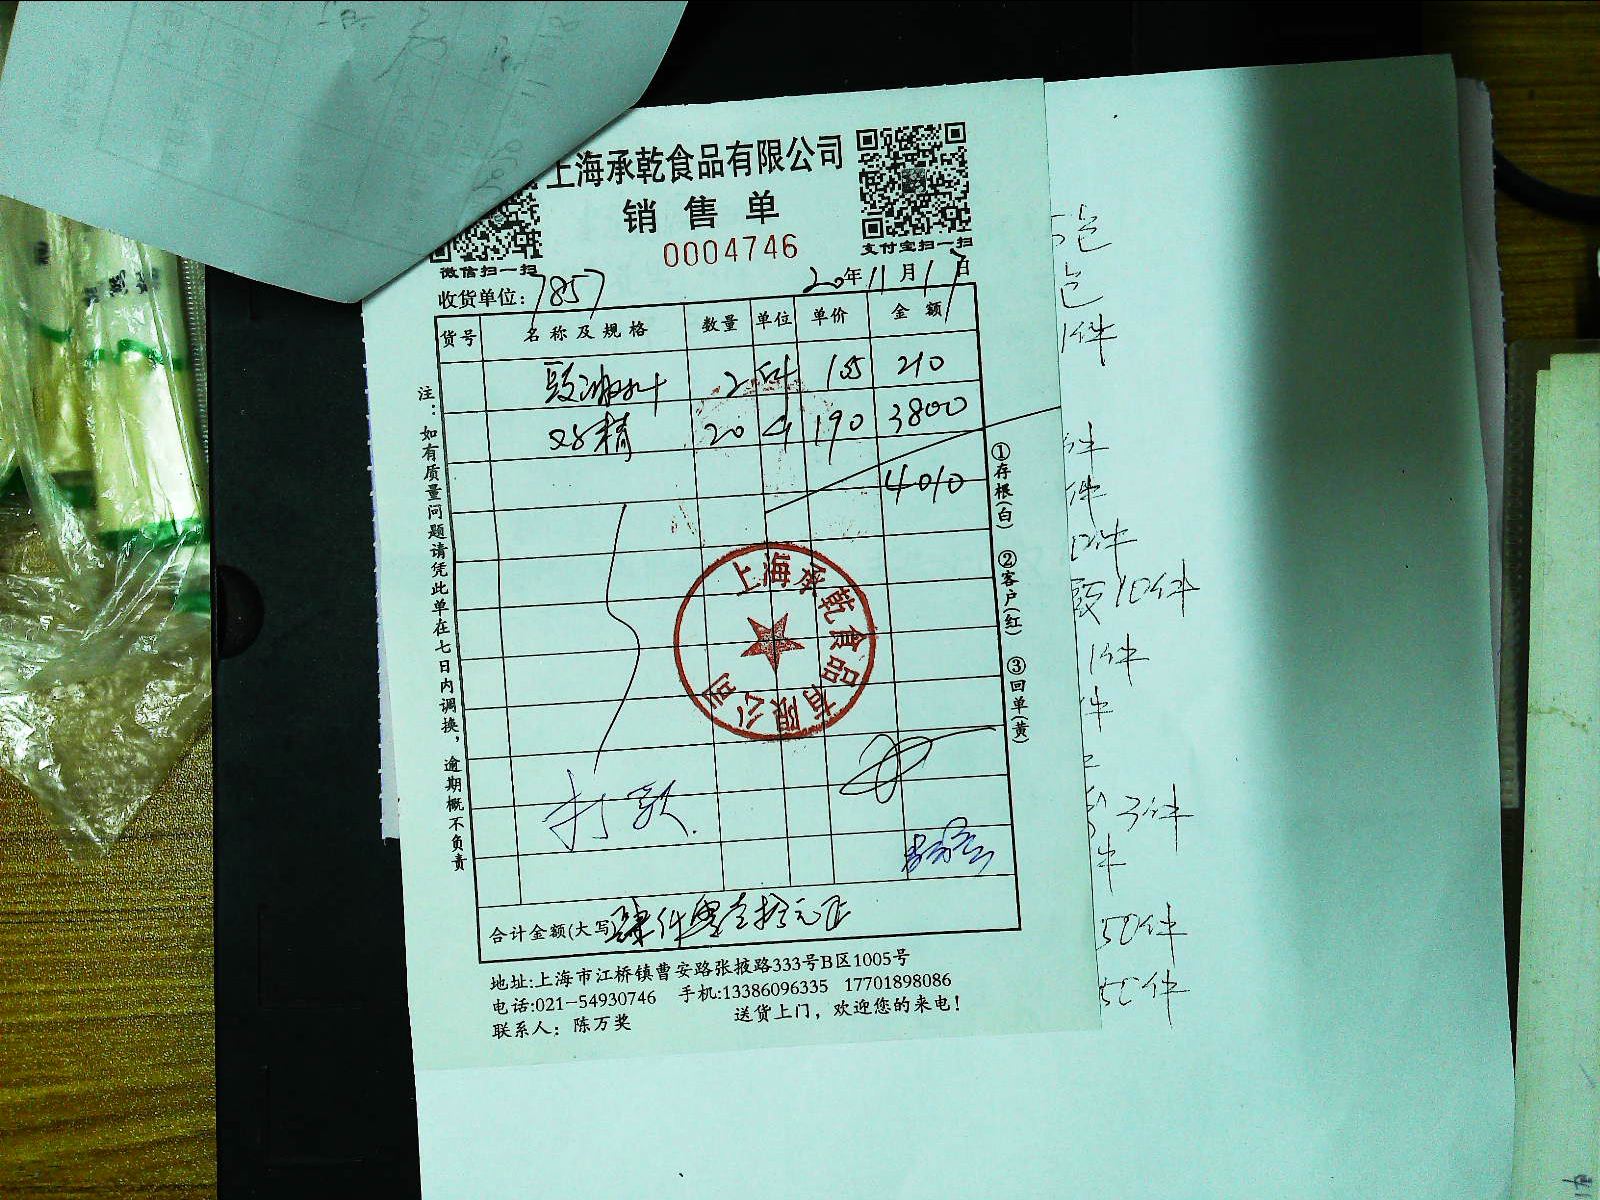 上海承乾食品有限公司
销售单
0004746
微信扫一扫
支付宝扫一扫
收货单位：7857
20年11月17日
货号 名称及规格 数量 单位 单价 金额
2件 105 210
鸡精 20 件 190 3800
4010
打款
合计金额(大写)肆仟零壹拾元正
地址：上海市江桥镇曹安路张掖路333号B区1005号
电话：021-54930746 手机：13386096335 17701898086
联系人：陈万奖 送货上门，欢迎您的来电！
注：如有质量问题请凭此单在七日内调换，逾期概不负责
①存根(白) ②客户(红) ③回单(黄)
上海承乾食品有限公司
包
1件
件
件
10件
1件
件
3件
件
50件
件